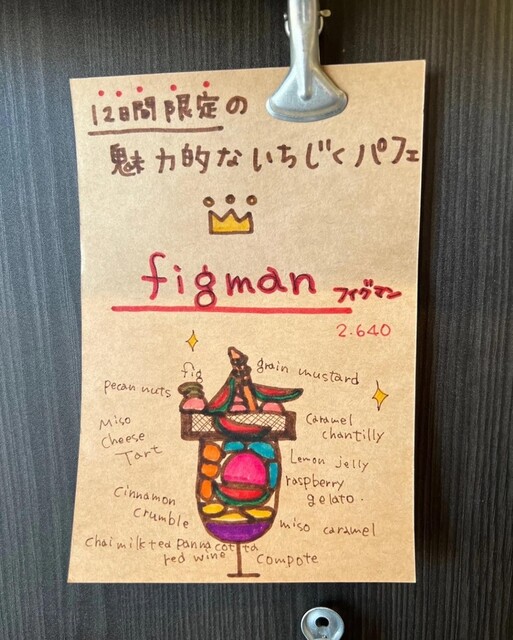 12日間限定の
魅力的ないちじくパフェ
figman フィグマン
2.640
fig
grain mustard
pecan nuts
Miso
Cheese
Tart
Caramel
chantilly
Lemon jelly
raspberry
gelato.
Cinnamon
Crumble
miso caramel
Chai milk tea panna cotta
red wine compote